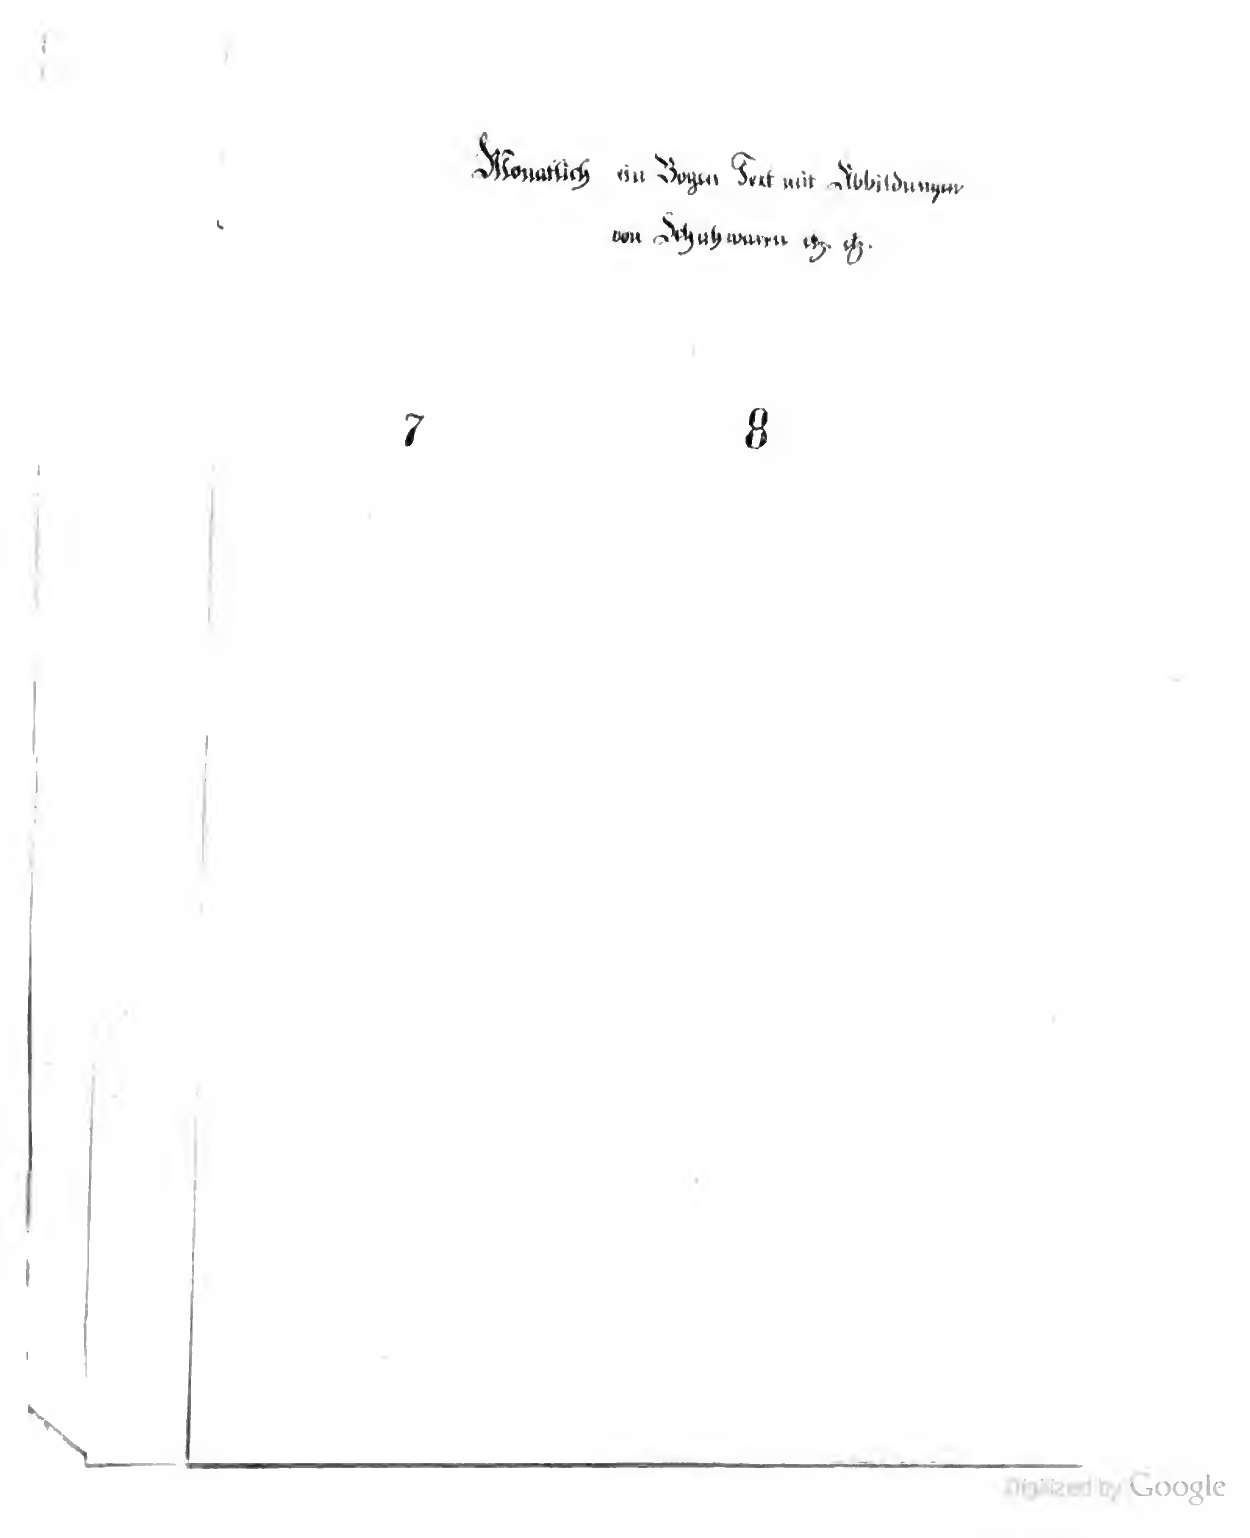 Monatlich ein Bogen Text mit Abbildungen
von Schuhwaren etz. etz.
7 8
Digitized by Google